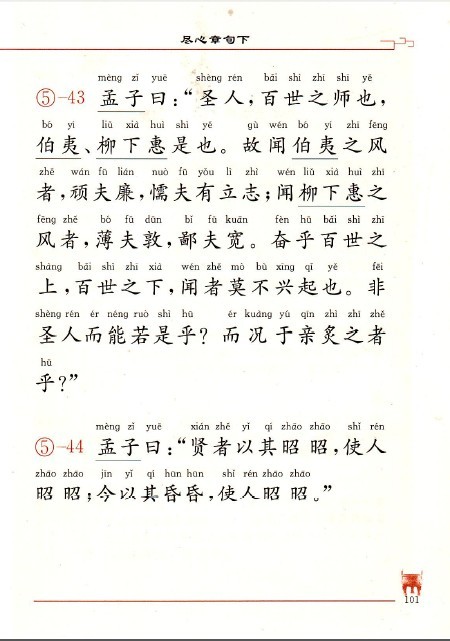 尽心章句下
mèng zǐ yuē shèng rén bǎi shì zhī shī yě
⑤-43 孟子曰：“圣人，百世之师也，
bó yí liǔ xià huì shì yě gù wén bó yí zhī fēng
伯夷、柳下惠是也。故闻伯夷之风
zhě wán fū lián nuò fū yǒu lì zhì wén liǔ xià huì zhī
者，顽夫廉，懦夫有立志；闻柳下惠之
fēng zhě bó fū dūn bǐ fū kuān fèn hū bǎi shì zhī
风者，薄夫敦，鄙夫宽。奋乎百世之
shàng bǎi shì zhī xià wén zhě mò bù xīng qǐ yě fēi
上，百世之下，闻者莫不兴起也。非
shèng rén ér néng ruò shì hū ér kuàng yú qīn zhì zhī zhě
圣人而能若是乎？而况于亲炙之者
hū
乎？”
mèng zǐ yuē xián zhě yǐ qí zhāo zhāo shǐ rén
⑤-44 孟子曰：“贤者以其昭昭，使人
zhāo zhāo jīn yǐ qí hūn hūn shǐ rén zhāo zhāo
昭昭；今以其昏昏，使人昭昭。”
101